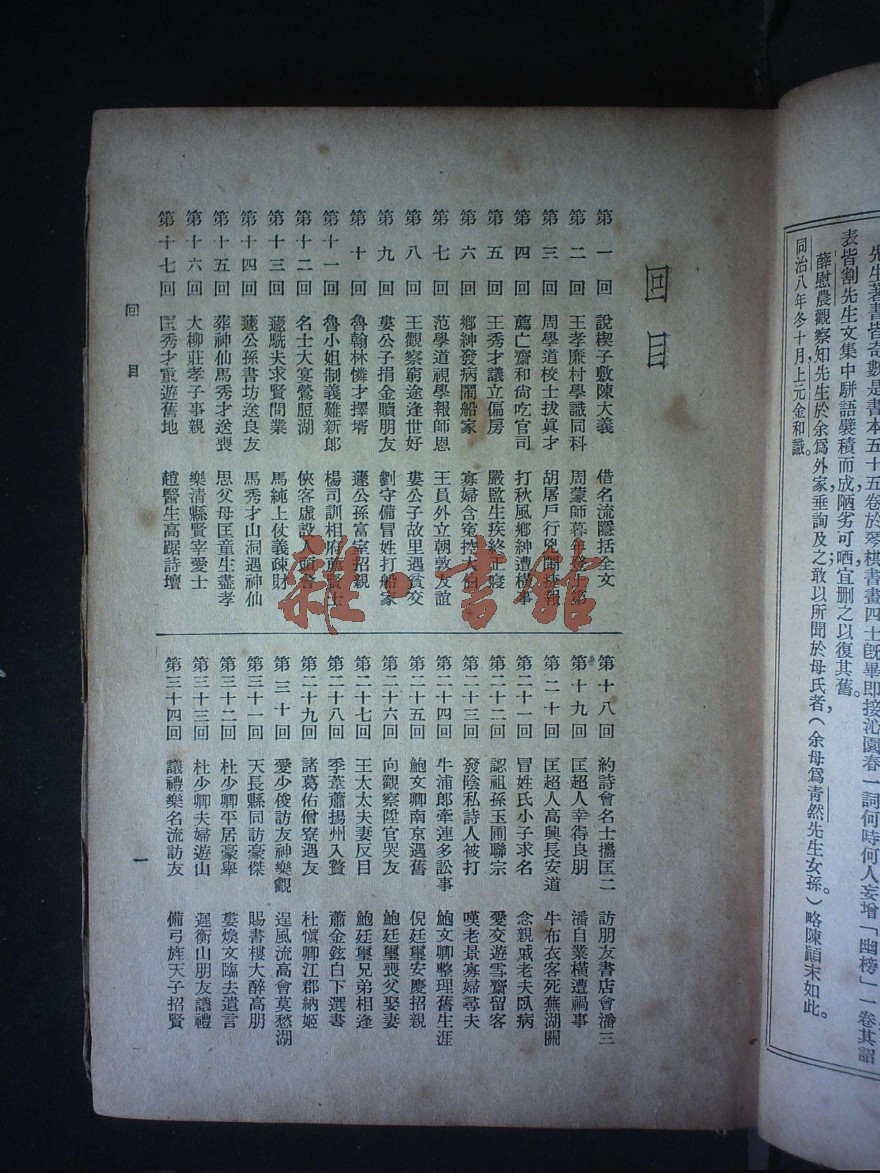 先生著書皆奇數是書本五十五卷於琴棋書畫四士旣畢卽接沁園春一詞何時何人妄增「幽榜」一卷其詔
表皆割先生文集中駢語襞積而成陋劣可哂宜刪之以復其舊。
薛慰農觀察知先生於余爲外家垂詢及之敢以所聞於母氏者(余母爲靑然先生女孫。)略陳顚末如此。
同治八年冬十月上元金和識。
回目
第一回 說楔子敷陳大義 借名流隱括全文
第二回 王孝廉村學識同科 周蒙師暮年登上第
第三回 周學道校士拔眞才 胡屠戶行兇鬧捷報
第四回 薦亡齋和尙吃官司 打秋風鄉紳遭橫事
第五回 王秀才議立偏房 嚴監生疾終正寢
第六回 鄉紳發病鬧船家 寡婦含冤控大伯
第七回 范學道視學報師恩 王員外立朝敦友誼
第八回 王觀察窮途逢世好 婁公子故里遇貧交
第九回 婁公子捐金贖朋友 劉守備冒姓打船家
第十回 魯翰林憐才擇壻 蘧公孫富室招親
第十一回 魯小姐制義難新郎 楊司訓相府薦賢士
第十二回 名士大宴鶯脰湖 俠客虛設人頭會
第十三回 蘧駪夫求賢問業 馬純上仗義疎財
第十四回 蘧公孫書坊送良友 馬秀才山洞遇神仙
第十五回 葬神仙馬秀才送喪 思父母匡童生盡孝
第十六回 大柳莊孝子事親 樂清縣賢宰愛士
第十七回 匡秀才重遊舊地 趙醫生高踞詩壇
第十八回 約詩會名士攜匡二 訪朋友書店會潘三
第十九回 匡超人幸得良朋 潘自業橫遭禍事
第二十回 匡超人高興長安道 牛布衣客死蕪湖關
第二十一回 冒姓氏小子求名 念親戚老夫臥病
第二十二回 認祖孫玉圃聯宗 愛交遊雪齋留客
第二十三回 發陰私詩人被打 嘆老景寡婦尋夫
第二十四回 牛浦郎牽連多訟事 鮑文卿整理舊生涯
第二十五回 鮑文卿南京遇舊 倪廷璽安慶招親
第二十六回 向觀察陞官哭友 鮑廷璽喪父娶妻
第二十七回 王太太夫妻反目 鮑廷璽兄弟相逢
第二十八回 季葦蕭揚州入贅 蕭金鉉白下選書
第二十九回 諸葛佑僧寮遇友 杜愼卿江郡納姬
第三十回 愛少俊訪友神樂觀 逞風流高會莫愁湖
第三十一回 天長縣同訪豪傑 賜書樓大醉高朋
第三十二回 杜少卿平居豪舉 婁煥文臨去遺言
第三十三回 杜少卿夫婦遊山 遲衡山朋友議禮
第三十四回 議禮樂名流訪友 備弓旌天子招賢
回目
一
雜·書館